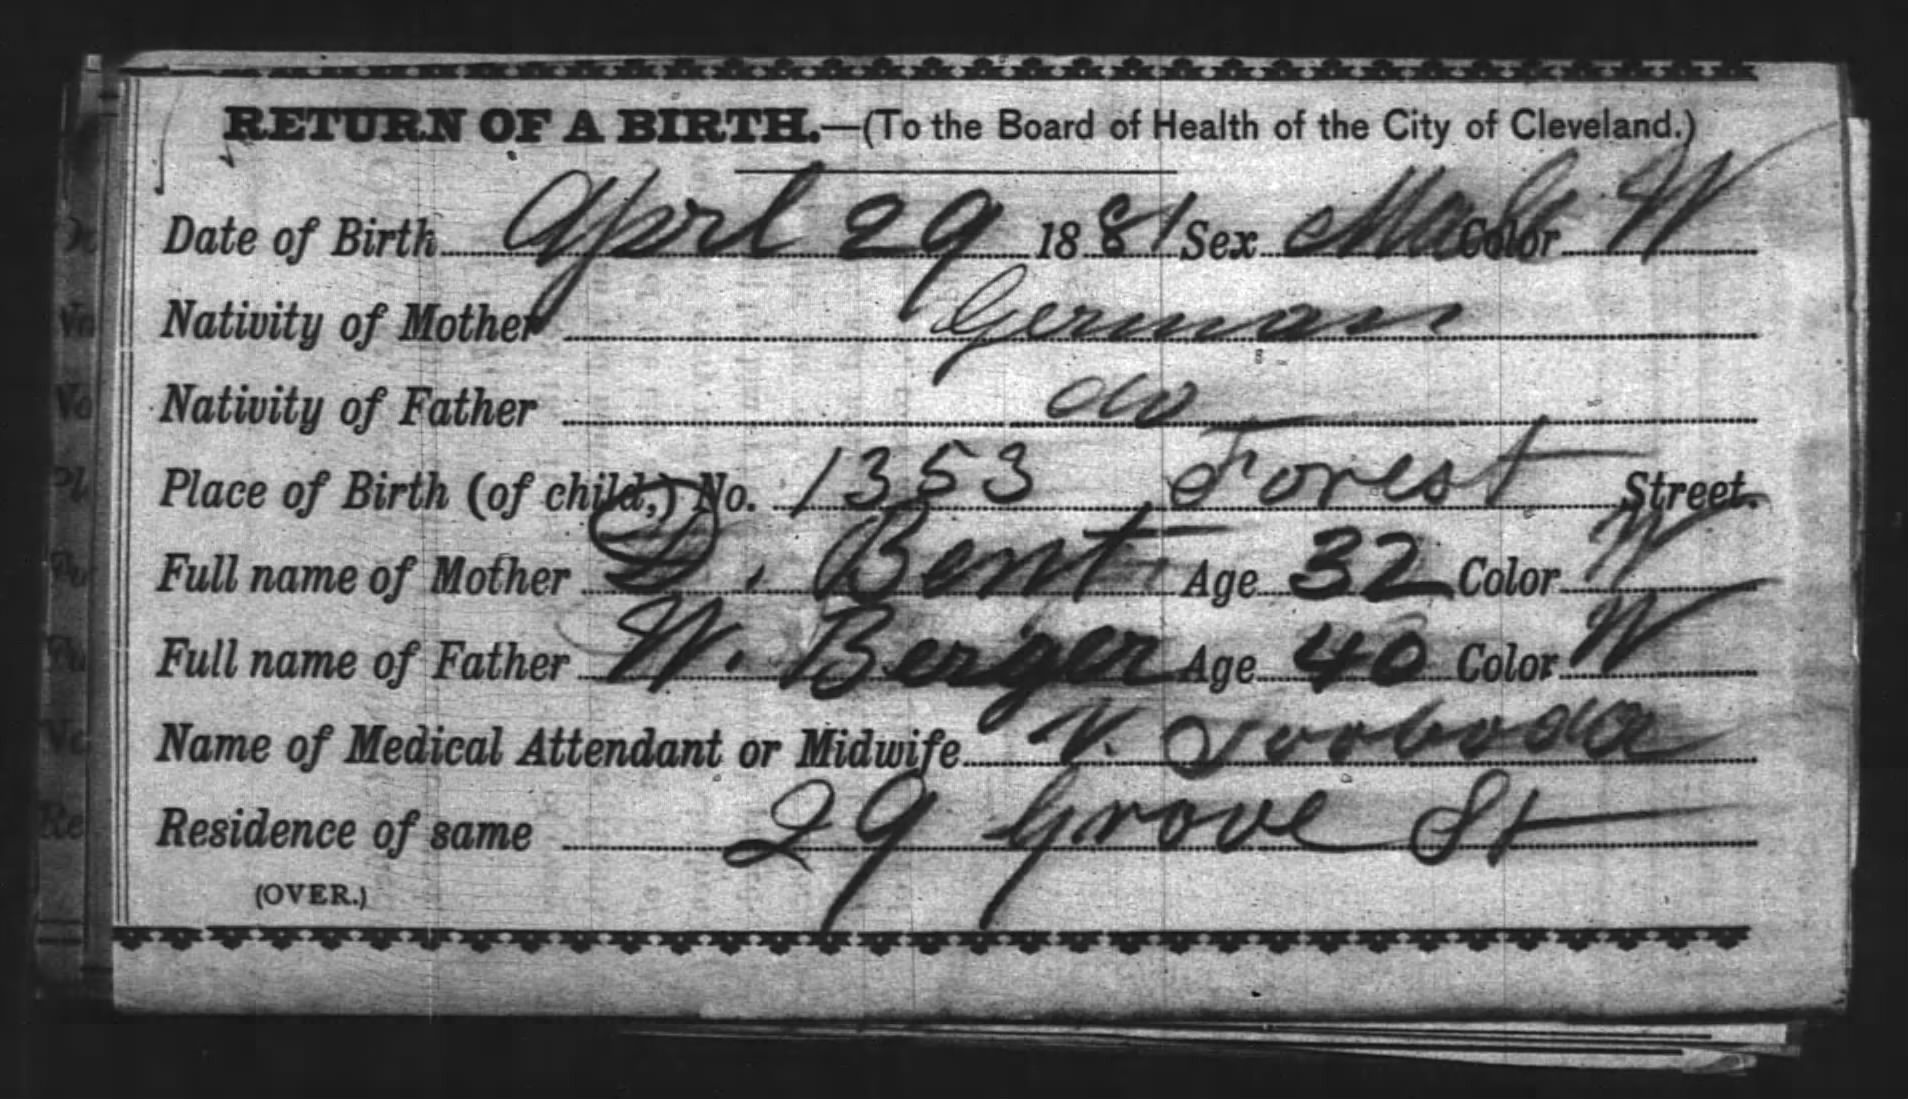 RETURN OF A BIRTH.—(To the Board of Health of the City of Cleveland.)
Date of Birth April 29 1881 Sex Male Color W
Nativity of Mother German
Nativity of Father do
Place of Birth (of child,) No. 1353 Forest Street.
Full name of Mother Bent Age 32 Color W
Full name of Father W. Berger Age 40 Color W
Name of Medical Attendant or Midwife V. Svoboda
Residence of same 29 Grove St
(OVER.)